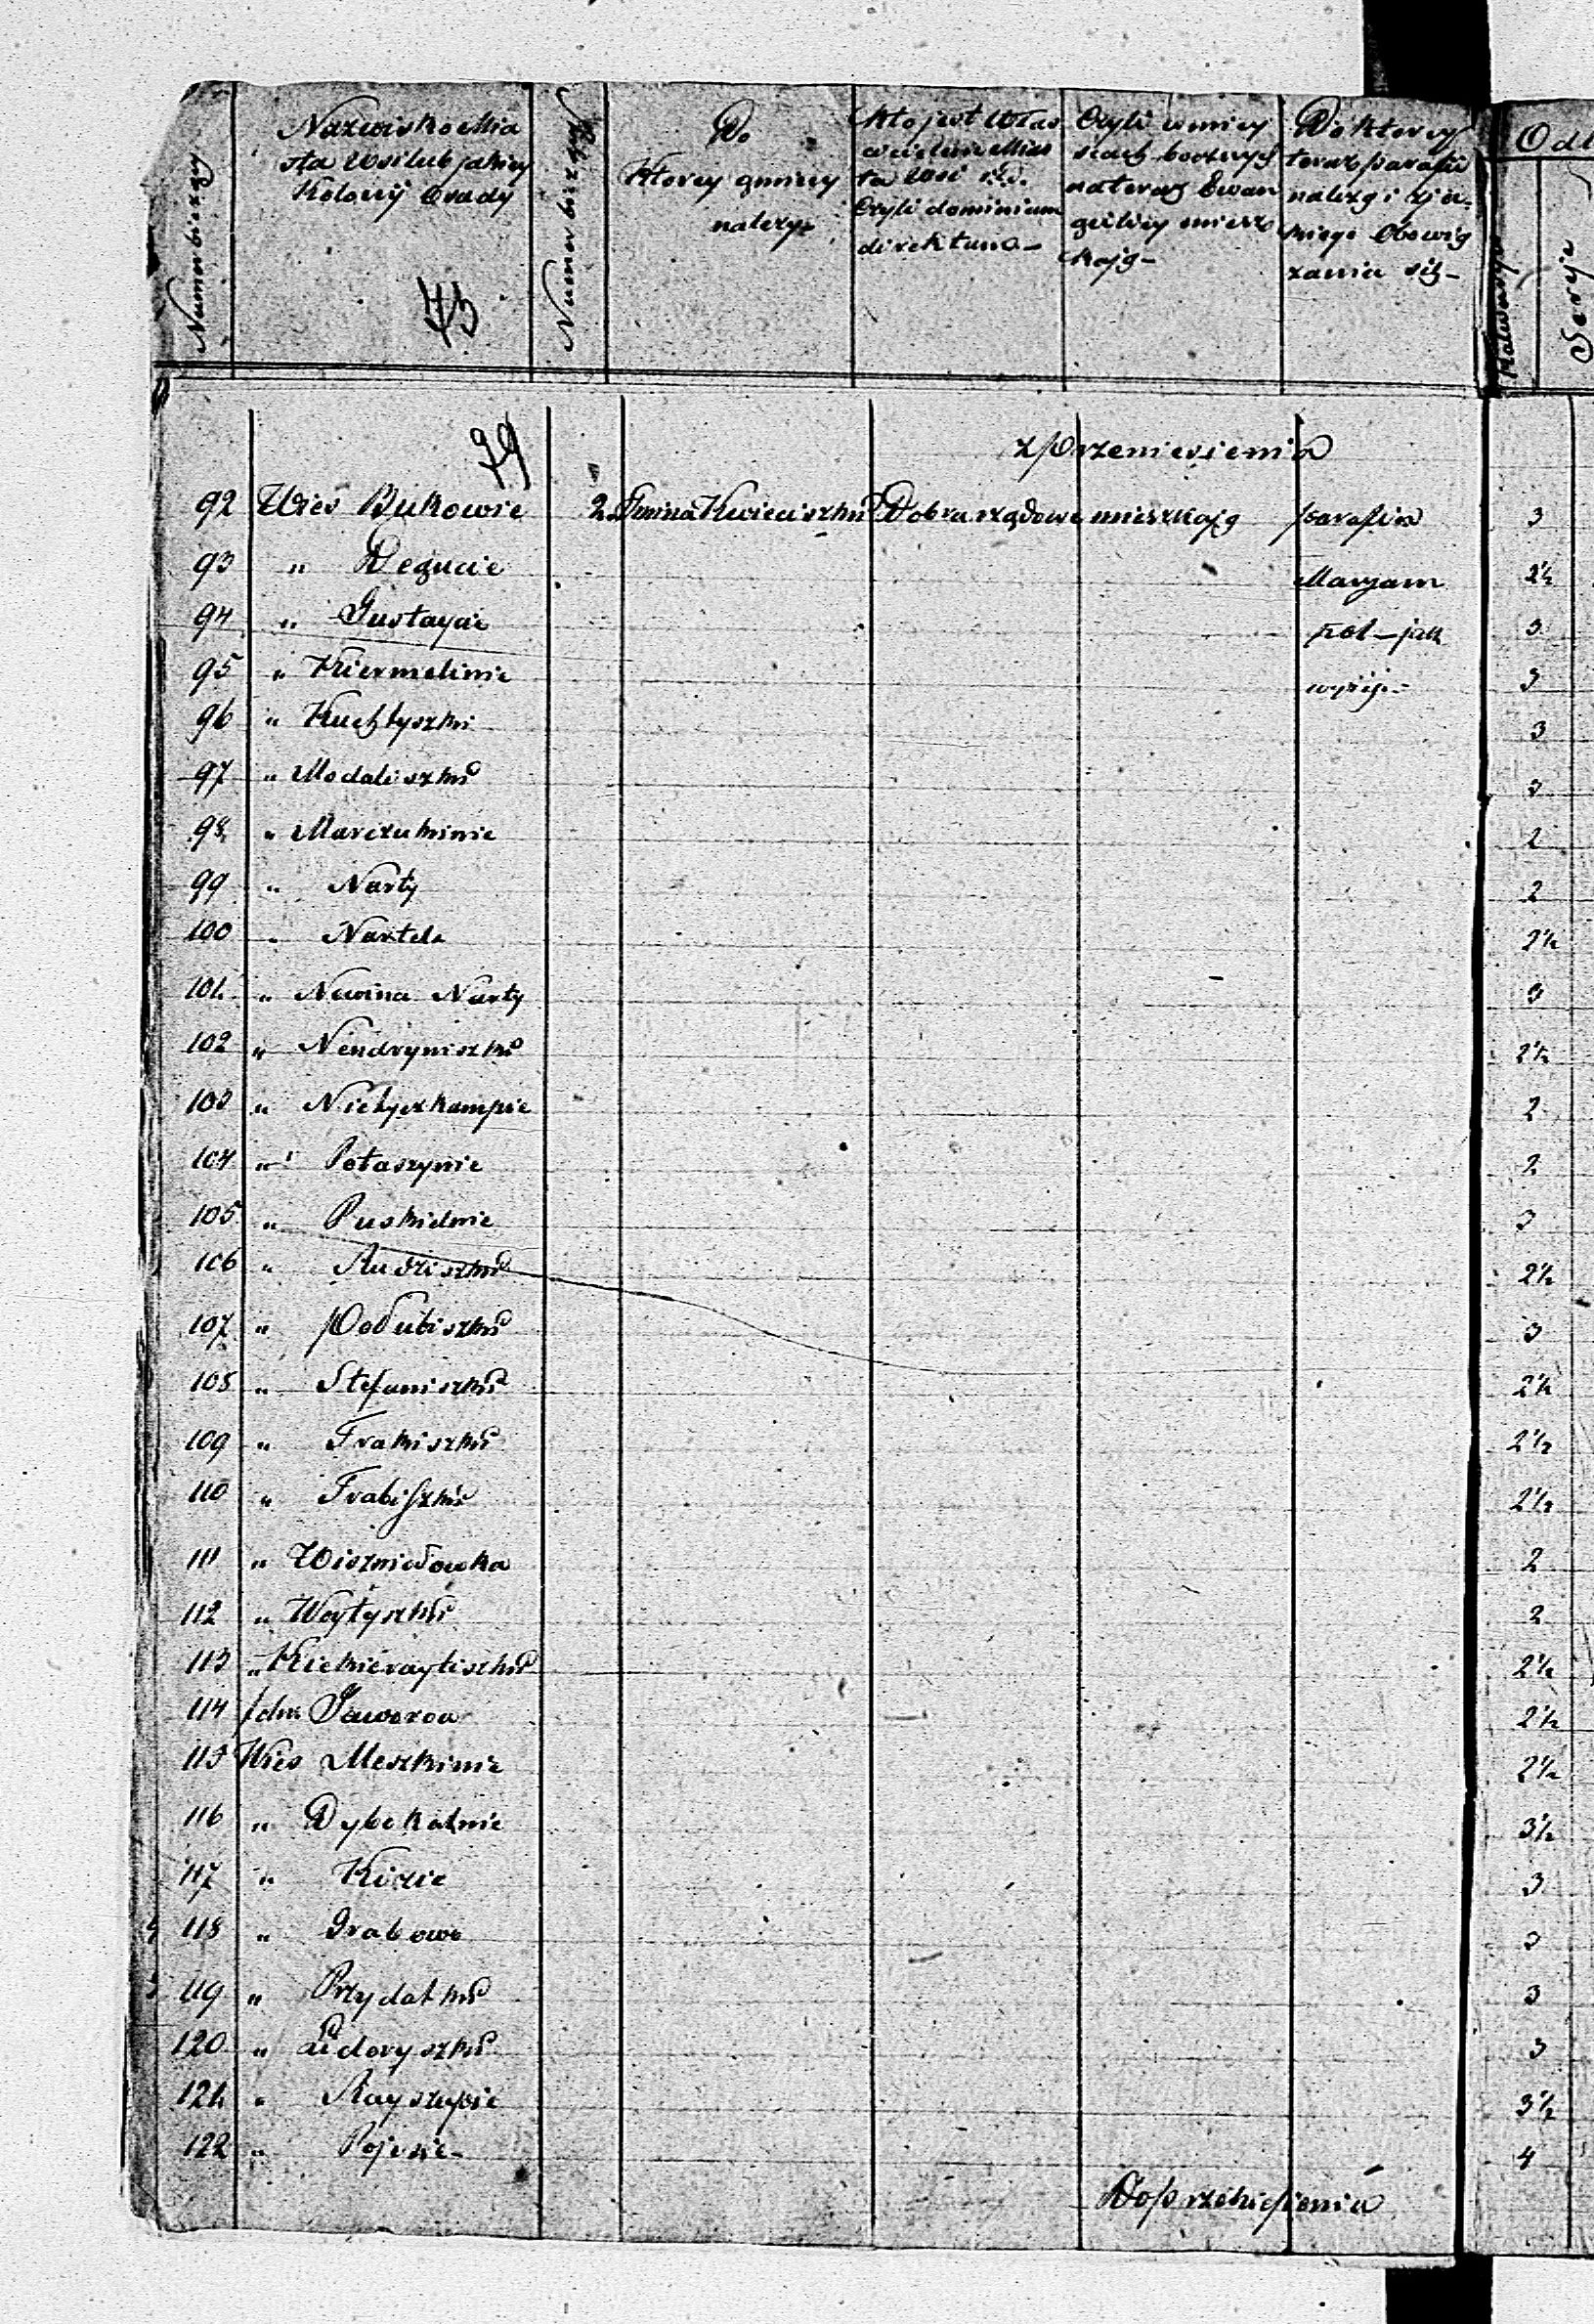 Numer bieżący
Nazwisko Mia
sta Wsi lub jakiey
Kolonij Osady
73
Numer bieżący
Do
Ktorey gminy
należy
Kto jest Właś
cicielem Mias
ta Wsi
Czyli dominium
direktum
Czyli w
na teraz Ewan
gelicy miesz
kają
Do ktorey
teraz parafii
należą i z ja
kiego Obowią
zania się
Kalwarya
Sereje
79
z przeniesienia
92 Wieś Bukowie 2 Gmina Kwieciszki Dobra rządowe mieszkają parafia 3
93 " Degucie Maryam 2½
94 " Gustaycie pol – jak 3
95 " Kiermelinie wyżej 3
96 " Kuchtyszki 3
97 " Modaliszki 3
98 " Marczukinie 2
99 " Narty 2
100 " Nartele 2½
101 " Nowina Narty 3
102 " Nendryniszki 2½
103 " Niczyszkampie 2
104 " Potaszynie 2
105 " Puskielnie 3
106 " Rudziszki 2½
107 " Podubiszki 3
108 " Stefaniszki 2½
109 " Trakiszki 2½
110 " Trabiszki 2½
111 " Wiszniowka 2
112 " Woytyszki 2
113 " Kiekierayliszki 2½
114 Jaworow 2½
115 Wieś Meszkinie 2½
116 " Dybekalnie 3½
117 " Kizie 3
118 " Grabowo 3
119 " Przydatki 3
120 " Lidoryszki 3
121 " Rayszupie 3½
122 " Pojesie 4
Do przeniesienia